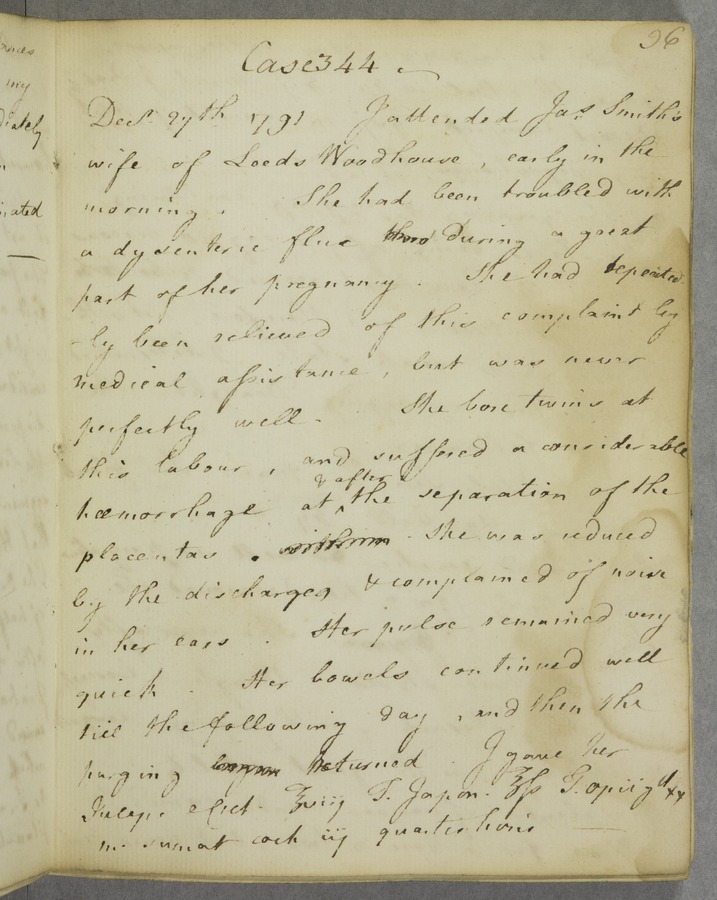 ances
my
diately
n
inated
96
Case 344.
Decr. 27th 1791 I attended Jas. Smith's
wife of Leeds Woodhouse, early in the
morning. She had been troubled with
a dysenteric flux during a great
part of her pregnancy. She had repeated
-ly been relieved of this complaint by
medical assistance, but was never
perfectly well. She bore twins at
this labour, and suffered a considerable
& after
hœmorrhage at ‸ the separation of the
placentas. She was reduced
by the discharges & complained of noise
in her ears. Her pulse remained very
quick. Her bowels continued well
till the following day, and then the
purging returned. I gave her
Julep. e ℥viij T. Japon. ℥ss T. opii gtt xx
m. sumat coch iij quartis horis